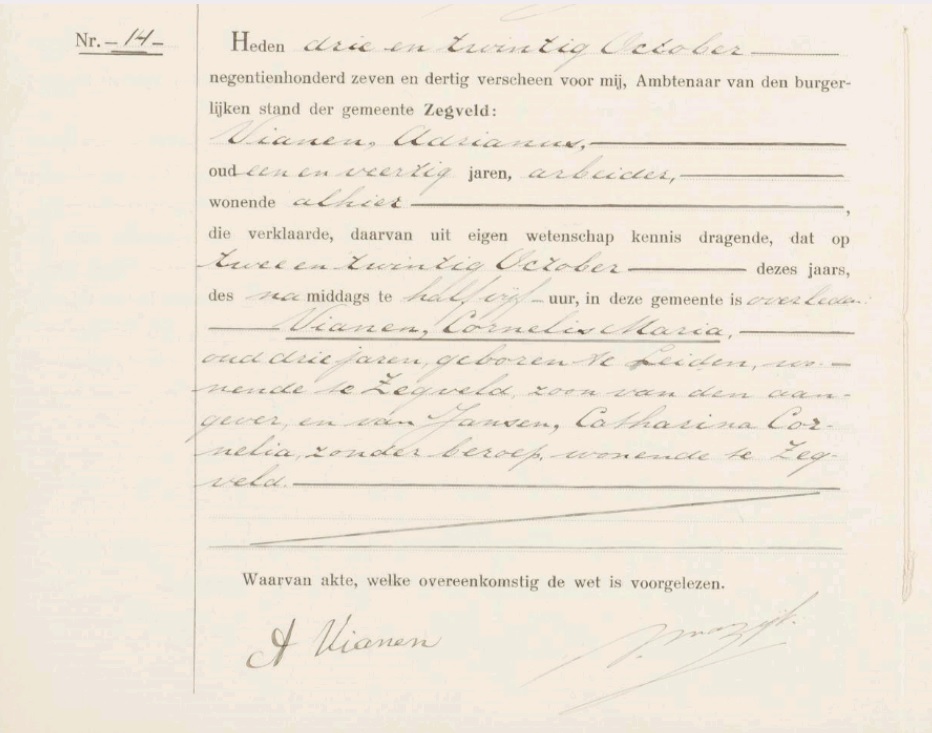 Nr. – 14 –
Heden drie en twintig October
negentienhonderd zeven en dertig verscheen voor mij, Ambtenaar van den burger-
lijken stand der gemeente Zegveld:
Vianen, Adrianus,
oud een en veertig jaren, arbeider,
wonende alhier ,
die verklaarde, daarvan uit eigen wetenschap kennis dragende, dat op
twee en twintig October dezes jaars,
des namiddags te half vijf uur, in deze gemeente is overleden
Vianen, Cornelis Maria,
oud drie jaren, geboren te Leiden, wo-
nende te Zegveld, zoon van den aan-
gever, en van Jansen, Catharina Cor-
nelia, zonder beroep, wonende te Zeg-
veld.
Waarvan akte, welke overeenkomstig de wet is voorgelezen.
A Vianen